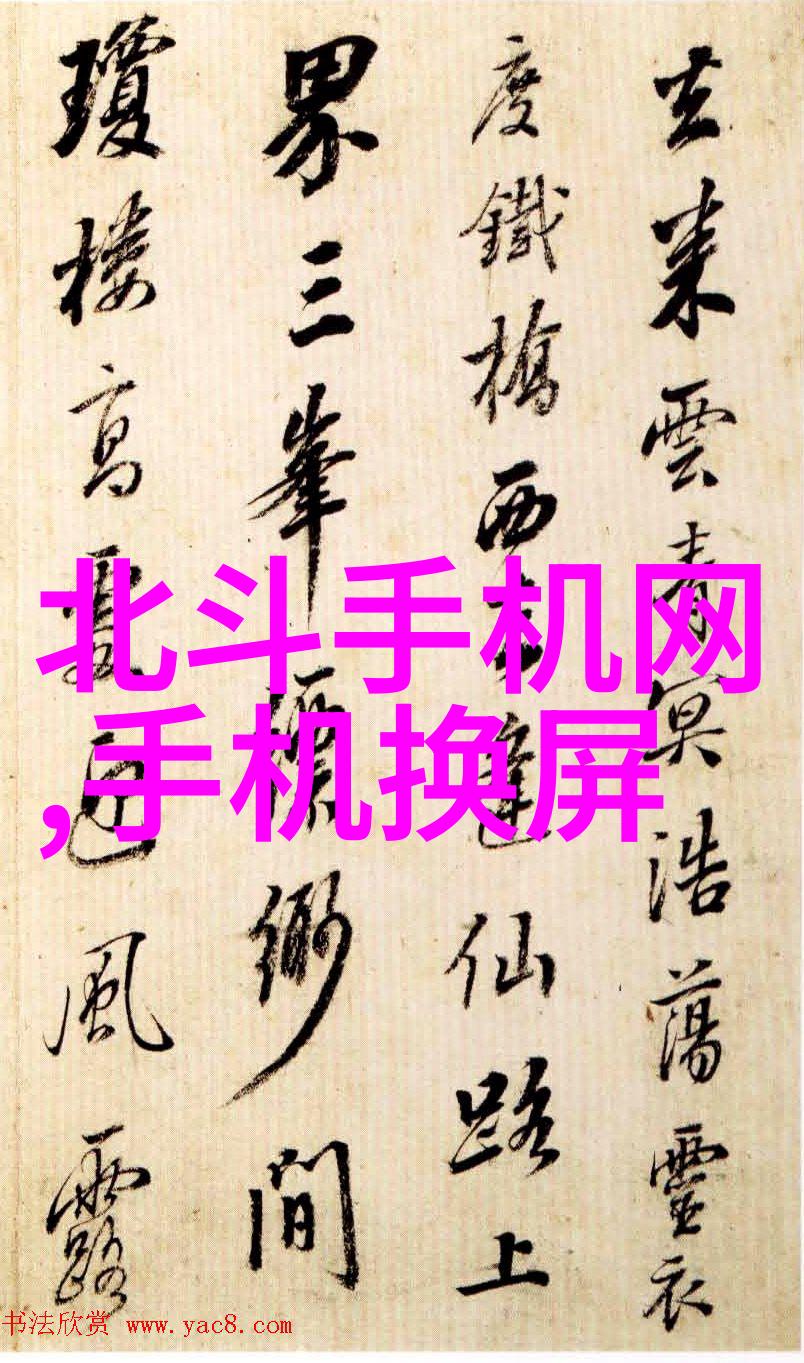 来雲青冥浩蕩靈衣
度鐵橋西達仙路上
界三峯縹緲間
瓊樓高處風露
北斗手机网
,手机换屏
书法欣赏 www.yac8.com